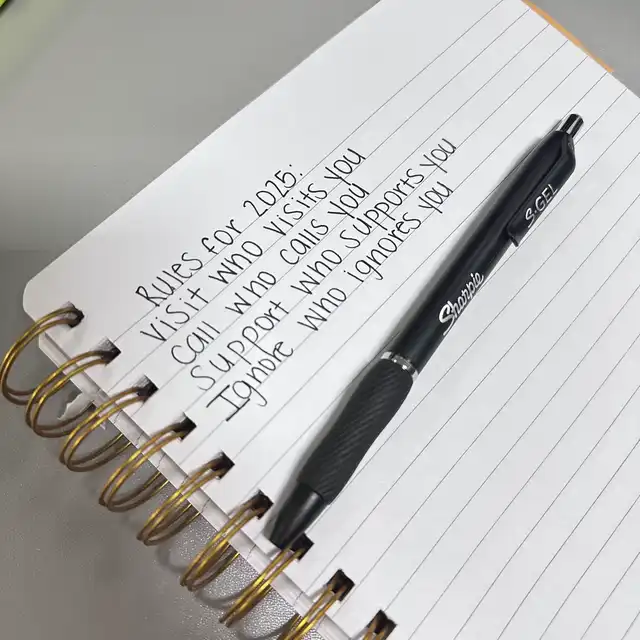 Rules for 2025:
Visit who visits you
Call who calls you
Support who supports you
Ignore who ignores you
Sharpie
S·GEL